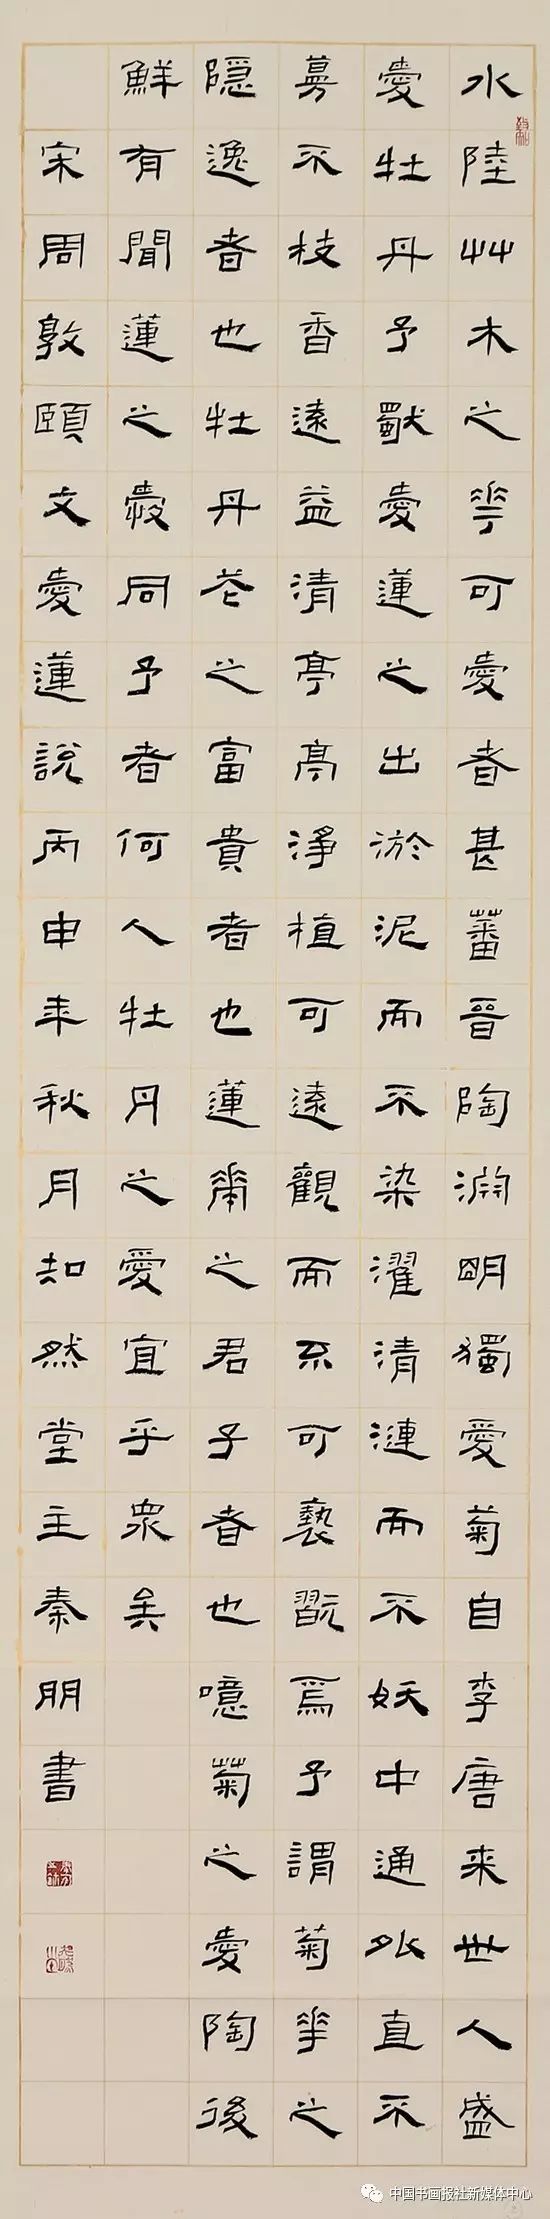 水陸艸木之華可愛者甚蕃晉陶淵明獨愛菊自李唐来世人盛
愛牡丹予獨愛蓮之出淤泥而不染濯清漣而不妖中通外直不
蔓不枝香遠益清亭亭淨植可遠觀而不可褻翫焉予謂菊華之
隐逸者也牡丹花之富貴者也蓮華之君子者也噫菊之愛陶後
鮮有聞蓮之愛同予者何人牡丹之愛宜乎衆矣
宋周敦頤文愛蓮說丙申年秋月知然堂主秦朋書
中国书画报社新媒体中心